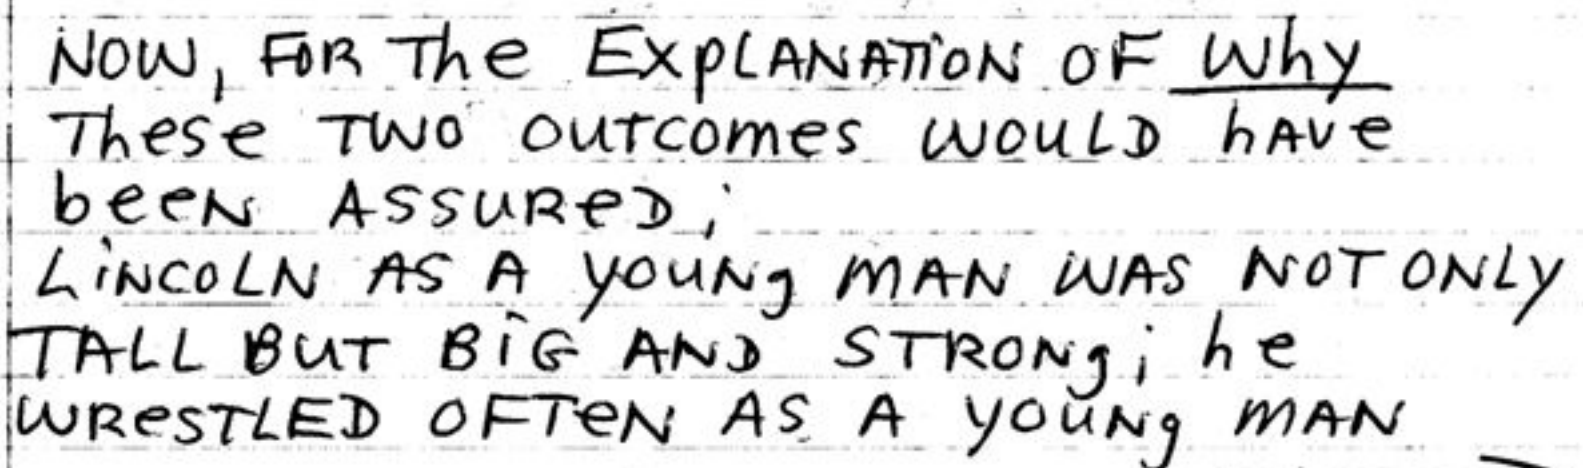 NOW, FOR The ExpLANATiON OF Why
These TWO OuTcomes WOULD hAve
beeN ASSUReD;
LiNCOLN AS A youNg MAN WAS NOT ONLY
TALL BUT BiG AND STRONg; he
WReSTLED OFTeN AS A youNg MAN